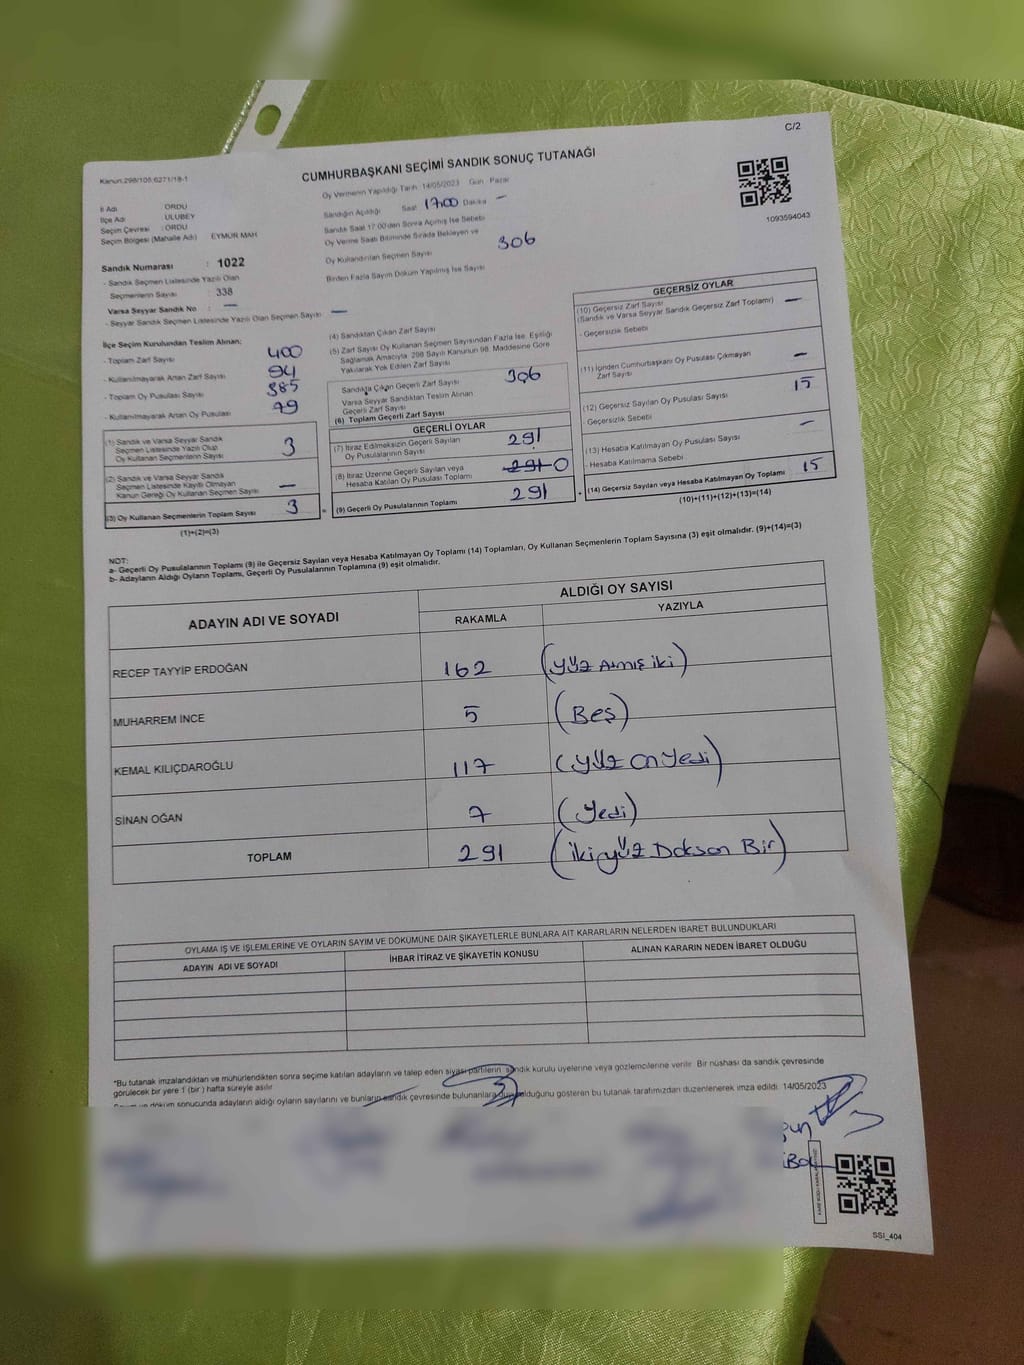 C/2
Kanun:298/105;6271/18-1
CUMHURBAŞKANI SEÇİMİ SANDIK SONUÇ TUTANAĞI
Oy Vermenin Yapıldığı Tarih: 14/05/2023 Gün: Pazar
1093594043
İl Adı : ORDU
İlçe Adı : ULUBEY
Seçim Çevresi : ORDU
Seçim Bölgesi (Mahalle Adı) EYMÜR MAH
Sandık Numarası : 1022
- Sandık Seçmen Listesinde Yazılı Olan
Seçmenlerin Sayısı : 338
Varsa Seyyar Sandık No : —
- Seyyar Sandık Seçmen Listesinde Yazılı Olan Seçmen Sayısı : —
Sandığın Açıldığı Saat 17:00 Dakika —
Sandık Saat 17:00'den Sonra Açılmış İse Sebebi
Oy Verme Saati Bitiminde Sırada Bekleyen ve
Oy Kullandırılan Seçmen Sayısı 306
Birden Fazla Sayım Döküm Yapılmış İse Sayısı
İlçe Seçim Kurulundan Teslim Alınan:
- Toplam Zarf Sayısı 400
- Kullanılmayarak Artan Zarf Sayısı 94
- Toplam Oy Pusulası Sayısı 385
- Kullanılmayarak Artan Oy Pusulası 79
(1) Sandık ve Varsa Seyyar Sandık
Seçmen Listesinde Yazılı Olup
Oy Kullanan Seçmenlerin Sayısı 3
(2) Sandık ve Varsa Seyyar Sandık
Seçmen Listesinde Kayıtlı Olmayan
Kanun Gereği Oy Kullanan Seçmen Sayısı —
(3) Oy Kullanan Seçmenlerin Toplam Sayısı 3
(1)+(2)=(3)
(4) Sandıktan Çıkan Zarf Sayısı
(5) Zarf Sayısı Oy Kullanan Seçmen Sayısından Fazla İse, Eşitliği
Sağlamak Amacıyla 298 Sayılı Kanunun 98. Maddesine Göre
Yakılarak Yok Edilen Zarf Sayısı
Sandıkta Çıkan Geçerli Zarf Sayısı 306
Varsa Seyyar Sandıktan Teslim Alınan
Geçerli Zarf Sayısı
(6) Toplam Geçerli Zarf Sayısı
GEÇERLİ OYLAR
(7) İtiraz Edilmeksizin Geçerli Sayılan
Oy Pusulalarının Sayısı 291
(8) İtiraz Üzerine Geçerli Sayılan veya
Hesaba Katılan Oy Pusulası Toplamı 291 0
(9) Geçerli Oy Pusulalarının Toplamı 291
GEÇERSİZ OYLAR
(10) Geçersiz Zarf Sayısı
(Sandık ve Varsa Seyyar Sandık Geçersiz Zarf Toplamı) —
- Geçersizlik Sebebi
(11) İçinden Cumhurbaşkanı Oy Pusulası Çıkmayan
Zarf Sayısı —
(12) Geçersiz Sayılan Oy Pusulası Sayısı 15
- Geçersizlik Sebebi
(13) Hesaba Katılmayan Oy Pusulası Sayısı —
- Hesaba Katılmama Sebebi
(14) Geçersiz Sayılan veya Hesaba Katılmayan Oy Toplamı 15
(10)+(11)+(12)+(13)=(14)
NOT:
a- Geçerli Oy Pusulalarının Toplamı (9) ile Geçersiz Sayılan veya Hesaba Katılmayan Oy Toplamı (14) Toplamları, Oy Kullanan Seçmenlerin Toplam Sayısına (3) eşit olmalıdır. (9)+(14)=(3)
b- Adayların Aldığı Oyların Toplamı, Geçerli Oy Pusulalarının Toplamına (9) eşit olmalıdır.
ADAYIN ADI VE SOYADI
ALDIĞI OY SAYISI
RAKAMLA YAZIYLA
RECEP TAYYİP ERDOĞAN 162 (Yüz Atmış iki)
MUHARREM İNCE 5 (Beş)
KEMAL KILIÇDAROĞLU 117 (Yüz On Yedi)
SİNAN OĞAN 7 (Yedi)
TOPLAM 291 (ikiyüz Doksan Bir)
OYLAMA İŞ VE İŞLEMLERİNE VE OYLARIN SAYIM VE DÖKÜMÜNE DAİR ŞİKAYETLERLE BUNLARA AİT KARARLARIN NELERDEN İBARET BULUNDUKLARI
ADAYIN ADI VE SOYADI İHBAR İTİRAZ VE ŞİKAYETİN KONUSU ALINAN KARARIN NEDEN İBARET OLDUĞU
*Bu tutanak imzalandıktan ve mühürlendikten sonra seçime katılan adayların ve talep eden siyasi partilerin sandık kurulu üyelerine veya gözlemcilerine verilir. Bir nüshası da sandık çevresinde
görülecek bir yere 1 (bir) hafta süreyle asılır.
döküm sonucunda adayların aldığı oyların sayılarını ve bunların sandık çevresinde bulunanlara olduğunu gösteren bu tutanak tarafımızdan düzenlenerek imza edildi. 14/05/2023
SSI_404